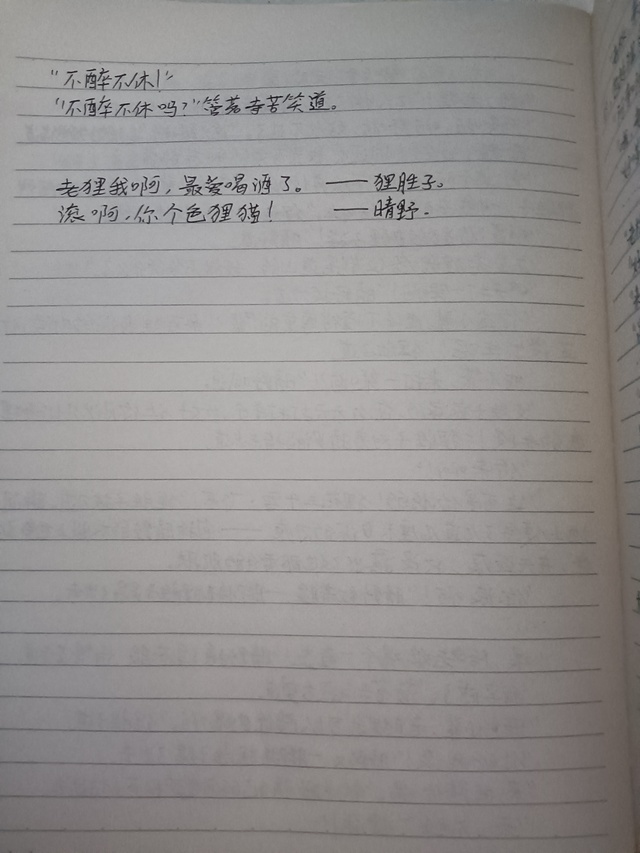 “不醉不休！”
“不醉不休吗？”答茗寺苦笑道。
老狸我啊，最爱喝酒了。 ——狸胜子。
滚啊，你个色狸猫！ ——晴野.